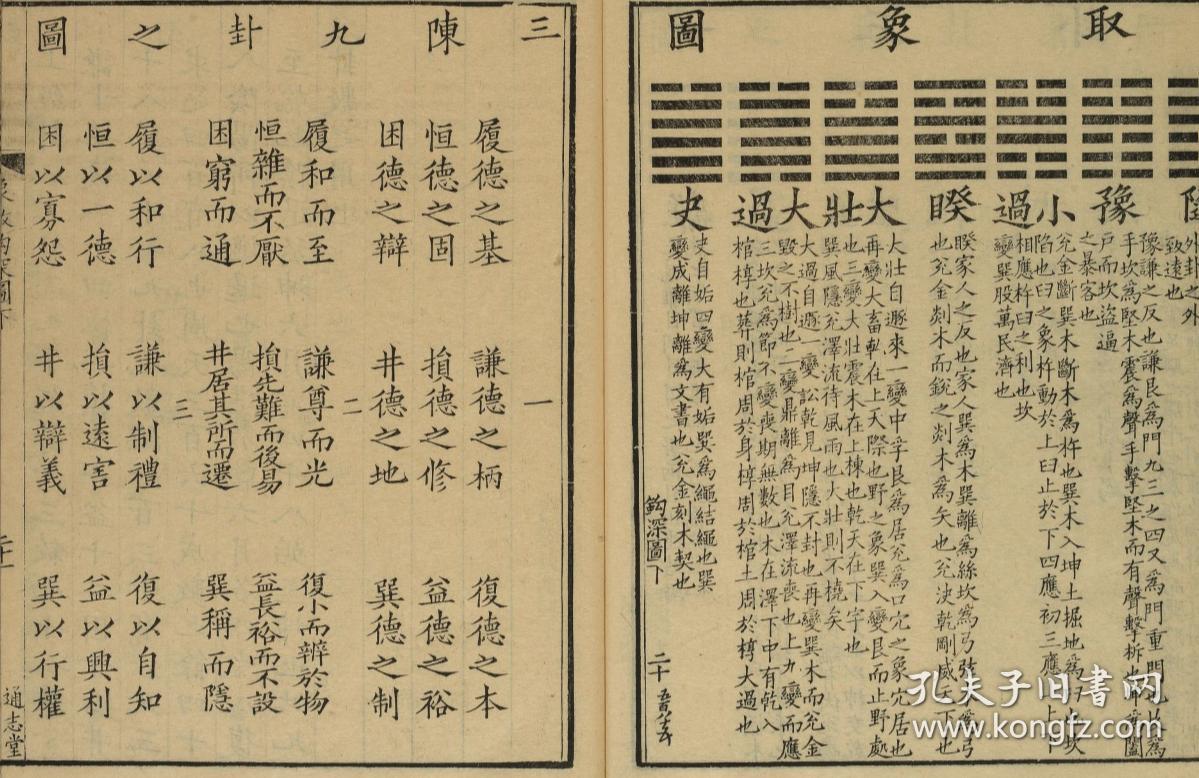 取象圖
外卦之外
致遠也
豫
豫謙之反也謙艮爲門九三之四又爲門重門也
手坎爲堅木震爲聲手擊堅木而有聲擊柝也
戶而坎盜逼
之暴客也
小過
兊金斷巽木斷木爲杵也巽木入坤土掘地爲臼坎
陷也臼之象杵動於上臼止於下四應初三應上上下
相應杵臼之利也坎
變巽股萬民濟也
睽
睽家人之反也家人巽爲木巽離爲絲坎爲弓弦木爲弓
也兊金剡木而銳之剡木爲矢也兊決乾剛威天下也
大壯
大壯自遯來一變中孚艮爲居兊爲口穴之象穴居也
再變大畜乾在上天際也野之象巽入變艮而止野處
也三變大壯震木在上棟也乾天在下宇也
巽風隱兊澤流待風雨也大壯則不橈矣
大過
大過自遯一變訟乾見坤隱不封也再變巽木而兊金
毀之不樹也三變鼎離爲目兊澤流喪也上九變而應
三坎兊爲節不變喪期無數也木在澤下中有乾入
棺椁也葬則棺周於身椁周於棺土周於椁大過也
夬
夬自姤四變大有姤巽爲繩結繩也巽
變成離坤離爲文書也兊金刻木契也
鈎深圖下
二十
三陳九卦之圖
一
履德之基 謙德之柄 復德之本
恒德之固 損德之修 益德之裕
困德之辯 井德之地 巽德之制
二
履和而至 謙尊而光 復小而辨於物
恒雜而不厭 損先難而後易 益長裕而不設
困窮而通 井居其所而遷 巽稱而隱
三
履以和行 謙以制禮 復以自知
恒以一德 損以遠害 益以興利
困以寡怨 井以辯義 巽以行權
通志堂
孔夫子旧书网
www.kongfz.com